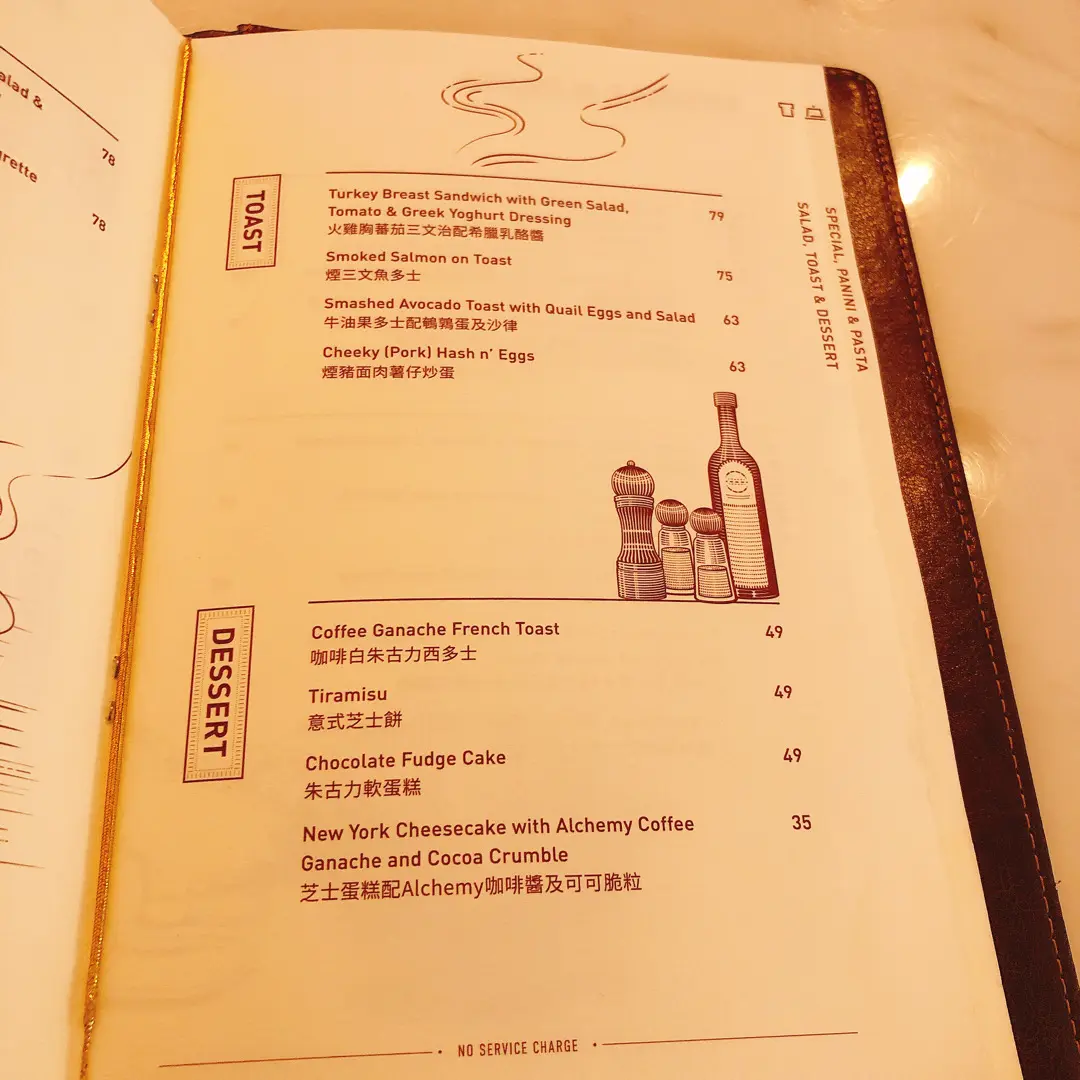 alad &
78
grette
78
TOAST
Turkey Breast Sandwich with Green Salad,
Tomato & Greek Yoghurt Dressing 79
火雞胸蕃茄三文治配希臘乳酪醬
Smoked Salmon on Toast 75
煙三文魚多士
Smashed Avocado Toast with Quail Eggs and Salad 63
牛油果多士配鵪鶉蛋及沙律
Cheeky (Pork) Hash n' Eggs 63
煙豬面肉薯仔炒蛋
SPECIAL, PANINI & PASTA
SALAD, TOAST & DESSERT
DESSERT
Coffee Ganache French Toast 49
咖啡白朱古力西多士
Tiramisu 49
意式芝士餅
Chocolate Fudge Cake 49
朱古力軟蛋糕
New York Cheesecake with Alchemy Coffee 35
Ganache and Cocoa Crumble
芝士蛋糕配Alchemy咖啡醬及可可脆粒
• NO SERVICE CHARGE •